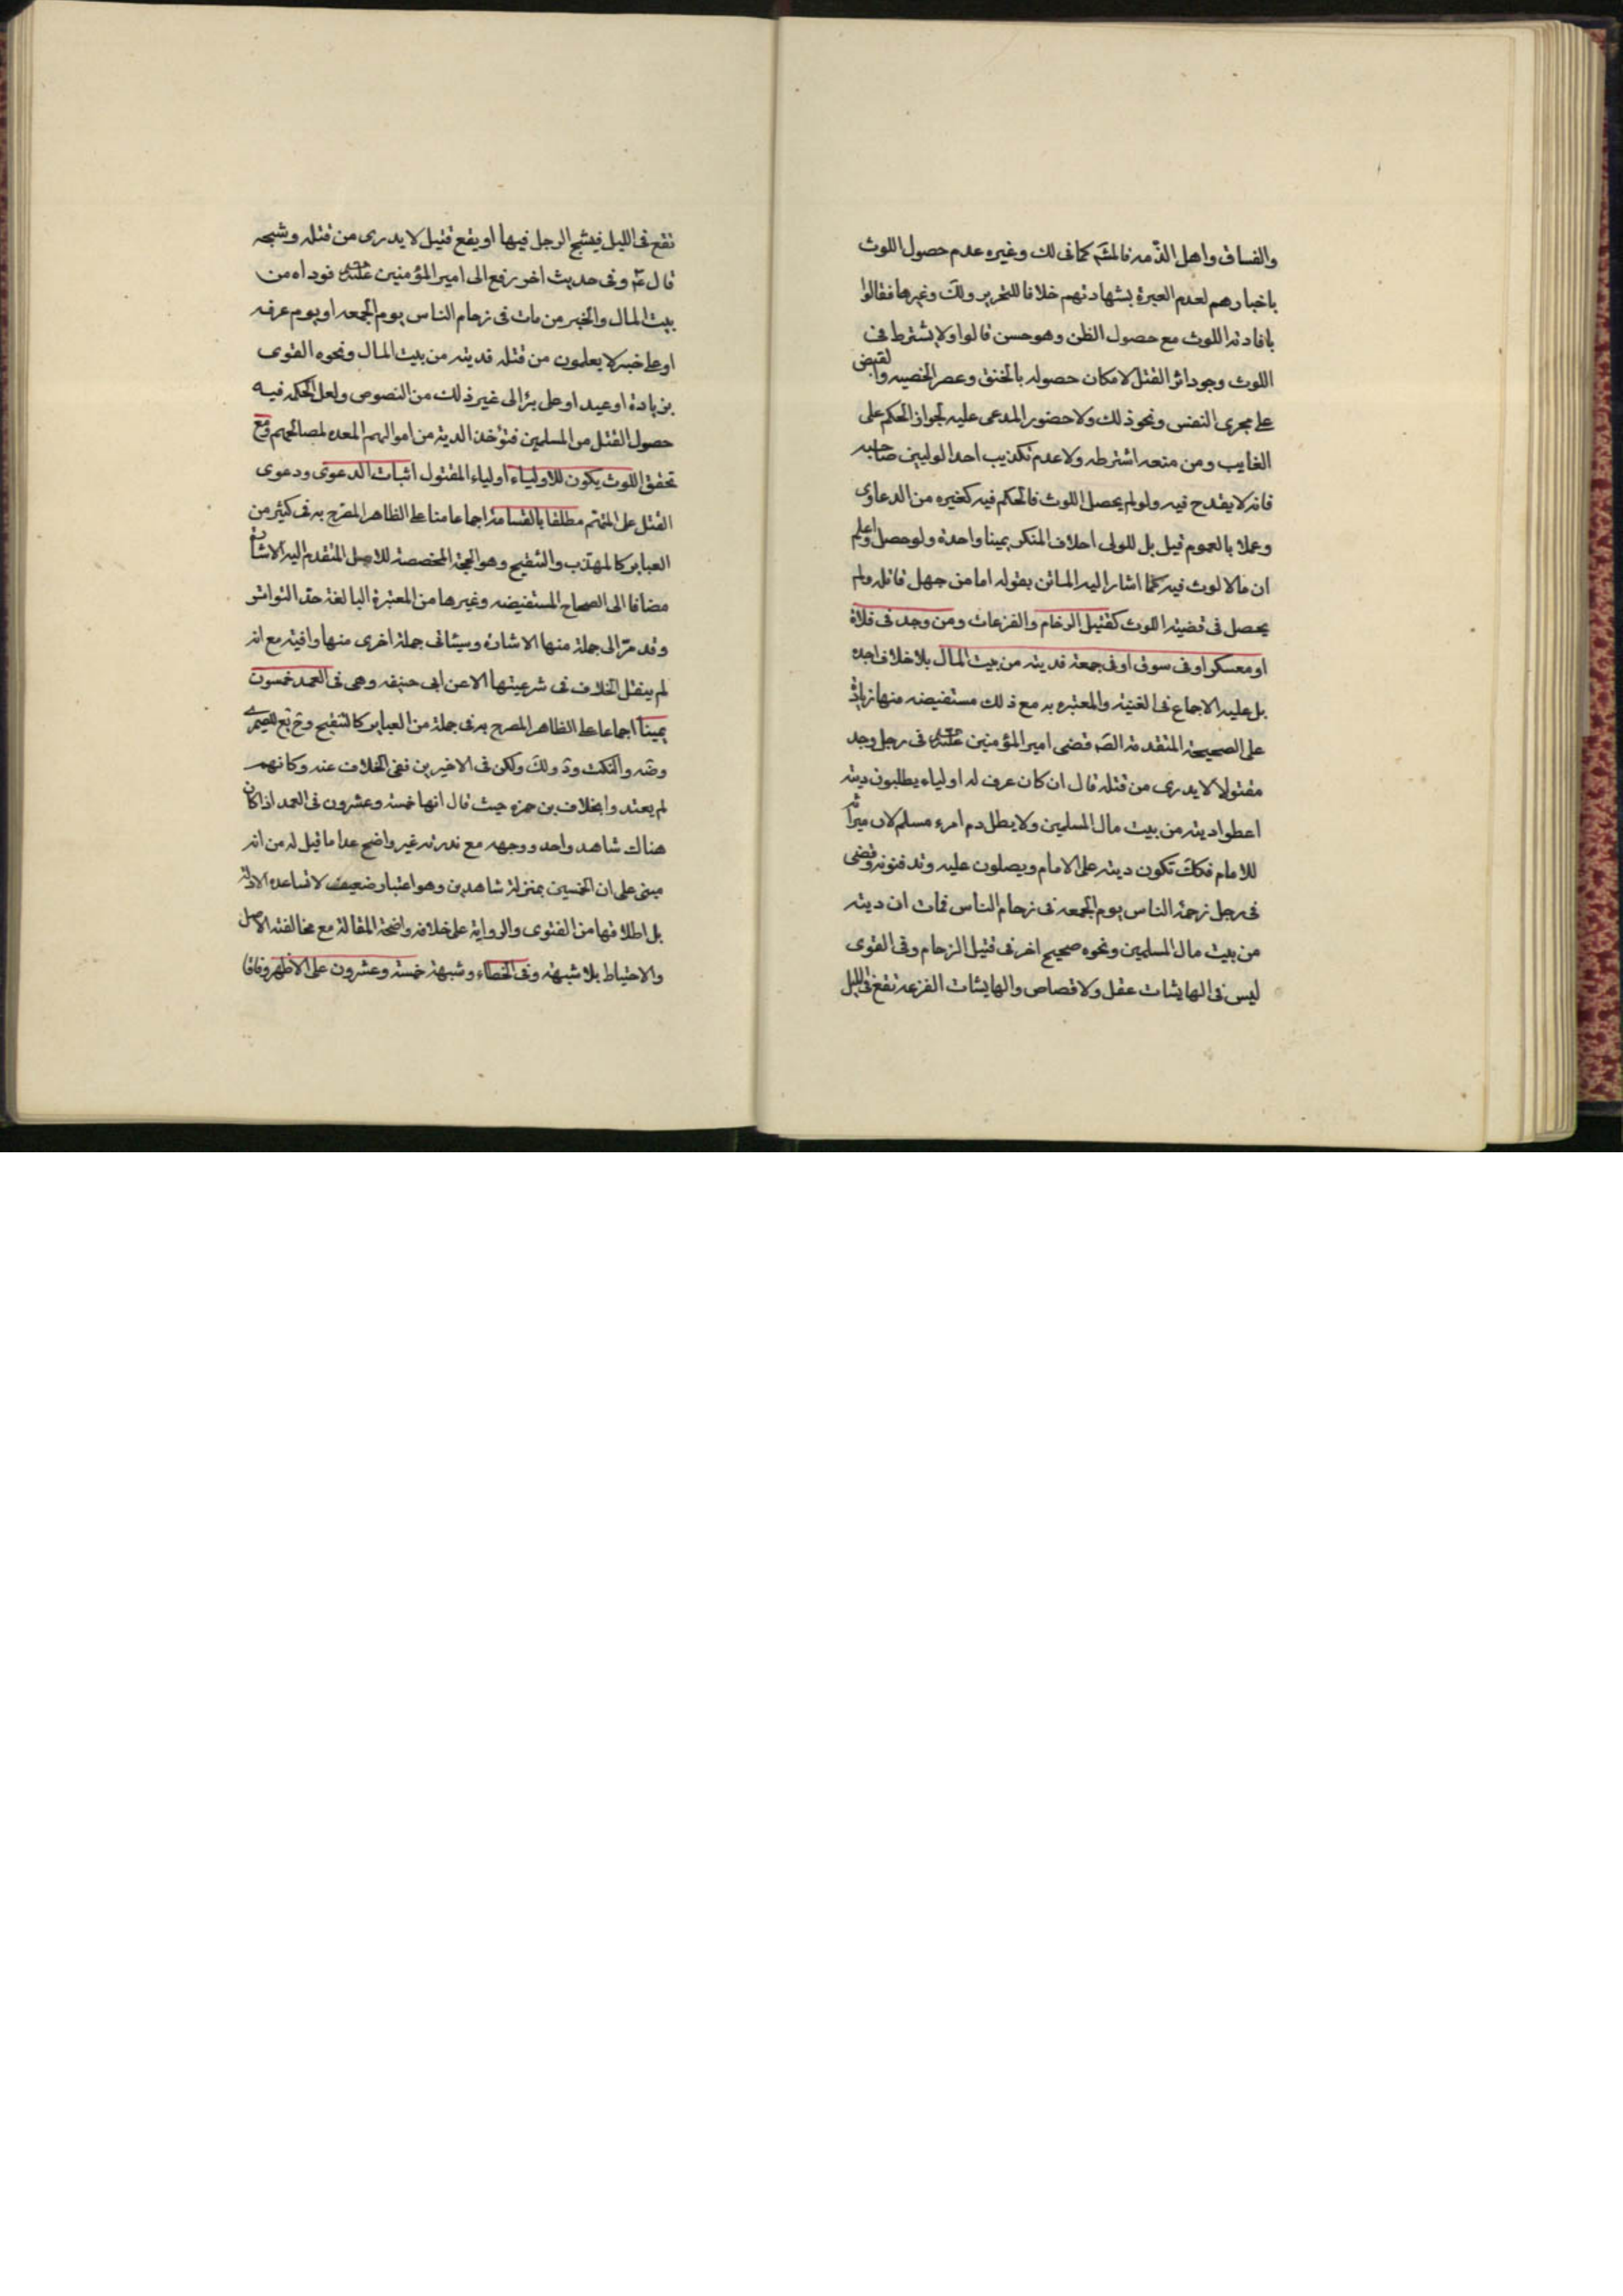 والفساق واهل الذمه فالمشَ كما فى لك وغيره عدم حصول اللوث
باخبارهم لعدم العبرة بشهادتهم خلافا للتحرير ولكَ وغيرها فقالوا
بافادته اللوث مع حصول الظن وهو حسن قالوا ولا يشترط فى
اللوث وجود اثر القتل لامكان حصوله بالخنق وعصر الخصيه والقبض
على مجرى النفس ونحو ذلك ولا حضور المدعى عليه لجواز الحكم على
الغايب ومن منعه اشترطه ولا عدم تكذيب احد الوليين صاحبه
فانه لا يقدح فيه ولو لم يحصل اللوث فالحكم فيه كغيره من الدعاوى
وعملا بالعموم قيل بل للولى احلاف المنكر يمينا واحدة ولو حصل واعلم
ان ما لا لوث فيه كما اشار اليه الماتن بقوله اما من جهل قاتله ولم
يحصل فى قضيته اللوث كقتيل الزخام والفزعات ومن وجد فى فلاة
او معسكر او فى سوق او فى جمعة فديته من بيت المال بلا خلاف اجده
بل عليه الاجماع فى الغنيه والمعتبره به مع ذلك مستفيضه منها زيادة
على الصحيحة المتقدمة الصَ قضى امير المؤمنين عليه فى رجل وجد
مقتولا لا يدرى من قتله قال ان كان عرف له اولياء يطلبون ديته
اعطوا ديته من بيت مال المسلمين ولا يطل دم امرء مسلم لان ميراثه
للامام فكك تكون ديته على الامام ويصلون عليه وتدفنونه وقضى
فى رجل زحمة الناس يوم الجمعه فى زحام الناس فمات ان ديته
من بيت مال المسلمين ونحوه صحيح اخر فى قتيل الزحام وفى القوى
ليس فى الهايشات عقل ولا قصاص والهايشات الفزعه تقع فى الليل
تقع فى الليل فيشج الرجل فيها او يقع قتيل لا يدرى من قتله وشجه
قال عَ وفى حديث اخر رفع الى امير المؤمنين عليه فوداه من
بيت المال والخبر من مات فى زحام الناس يوم الجمعه او يوم عرفه
او على خبر لا يعلمون من قتله فديته من بيت المال ونحوه القوى
بزيادة او عيد او على بئر الى غير ذلك من النصوص ولعل الحكمه فيه
حصول القتل من المسلمين فتؤخذ الدية من اموالهم المعده لمصالحهم ومع
تحقق اللوث يكون للاولياء اولياء المقتول اثبات الدعوى ودعوى
القتل على المتهم مطلقا بالقسامة اجماعا منا على الظاهر المصرح به فى كثير من
العباير كالمهذب والتنقيح وهو الحجة المخصصة للاصل المتقدم اليه الاشارة
مضافا الى الصحاح المستفيضه وغيرها من المعتبرة البالغة حد التواتر
وقد مرّ الى جملة منها الاشارة وسيئاتى جملة اخرى منها وافية مع انه
لم ينقل الخلاف فى شرعيتها الا عن ابى حنيفه وهى فى العمد خمسون
يمينا اجماعا على الظاهر المصرح به فى جملة من العباير كالتنقيح وحَ تبع للصيمرى
وضَه والنكت ودَ ولكَ ولكن فى الاخيرين نفى الخلاف عنه وكانهم
لم يعتدوا بخلاف بن حمزه حيث قال انها خمسة وعشرون فى العمد اذا كان
هناك شاهد واحد ووجهه مع ندرته غير واضح عدا ما قيل له من انه
مبنى على ان الخمسين بمنزلة شاهدين وهو اعتبار ضعيف لا تساعده الادلة
بل اطلاقها من الفتوى والرواية على خلافه واضحة المقالة مع مخالفته الاصل
والاحتياط بلا شبهة وفى الخطاء وشبهة خمسة وعشرون على الاظهر وفاقا